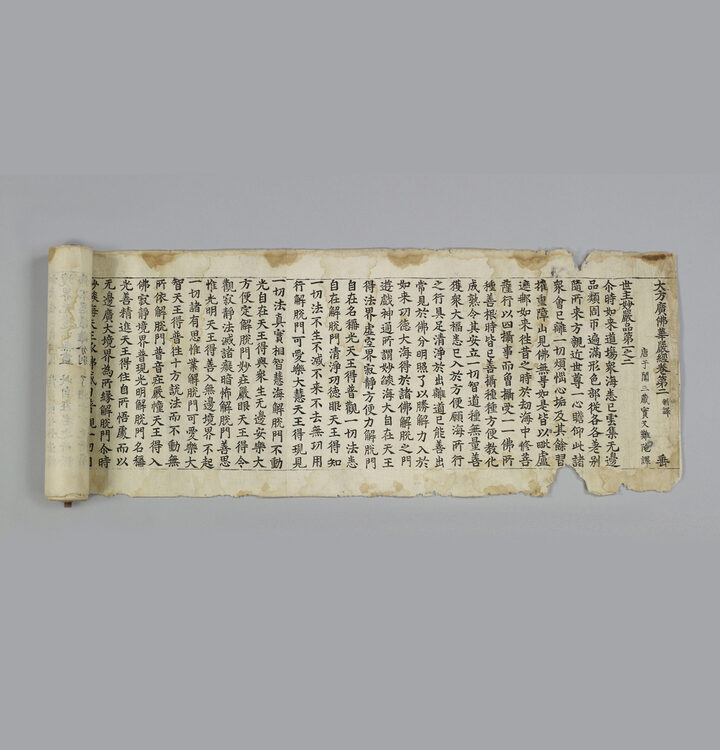 大方廣佛華嚴經卷第二 新譯
唐于闐三藏實叉難陁譯 垂
世主妙嚴品第一之二
尒時如来道場衆海悉已雲集无邊
品類周帀遍滿形色部從各各差别
隨所来方親近世尊一心瞻仰此諸
衆會已離一切煩惱心垢及其餘習
摧重障山見佛無㝵如是皆以毗盧
遮那如来往昔之時於劫海中修菩
薩行以四攝事而曽攝受一一佛所
種善根時皆已善攝種種方便教化
成熟令其安立一切智道種無量善
獲衆大福悉已入於方便願海所行
之行具足清淨於出離道已能善出
常見於佛分明照了以勝解力入於
如来㓛德大海得於諸佛解脫之門
遊戲神通所謂妙燄海大自在天王
得法界虚空界寂靜方便力解脫門
自在名稱光天王得普觀一切法悉
自在解脫門清淨㓛德眼天王得知
一切法不生不滅不来不去無㓛用
行解脫門可愛樂大慧天王得現見
一切法真實相智慧海解脫門不動
光自在天王得與衆生无邊安樂大
方便定解脫門妙莊嚴眼天王得令
觀寂靜法滅諸癡暗怖解脫門善思
惟光明天王得善入無邊境界不起
一切諸有思惟業解脫門可愛樂大
智天王得普徃十方說法而不動無
所依解脫門普音莊嚴幢天王得入
佛寂靜境界普現光明解脫門名稱
光善精進天王得住自所悟處而以
无邊廣大境界為所緣解脫門尒時
妙燄海天王承佛威力普觀一切自